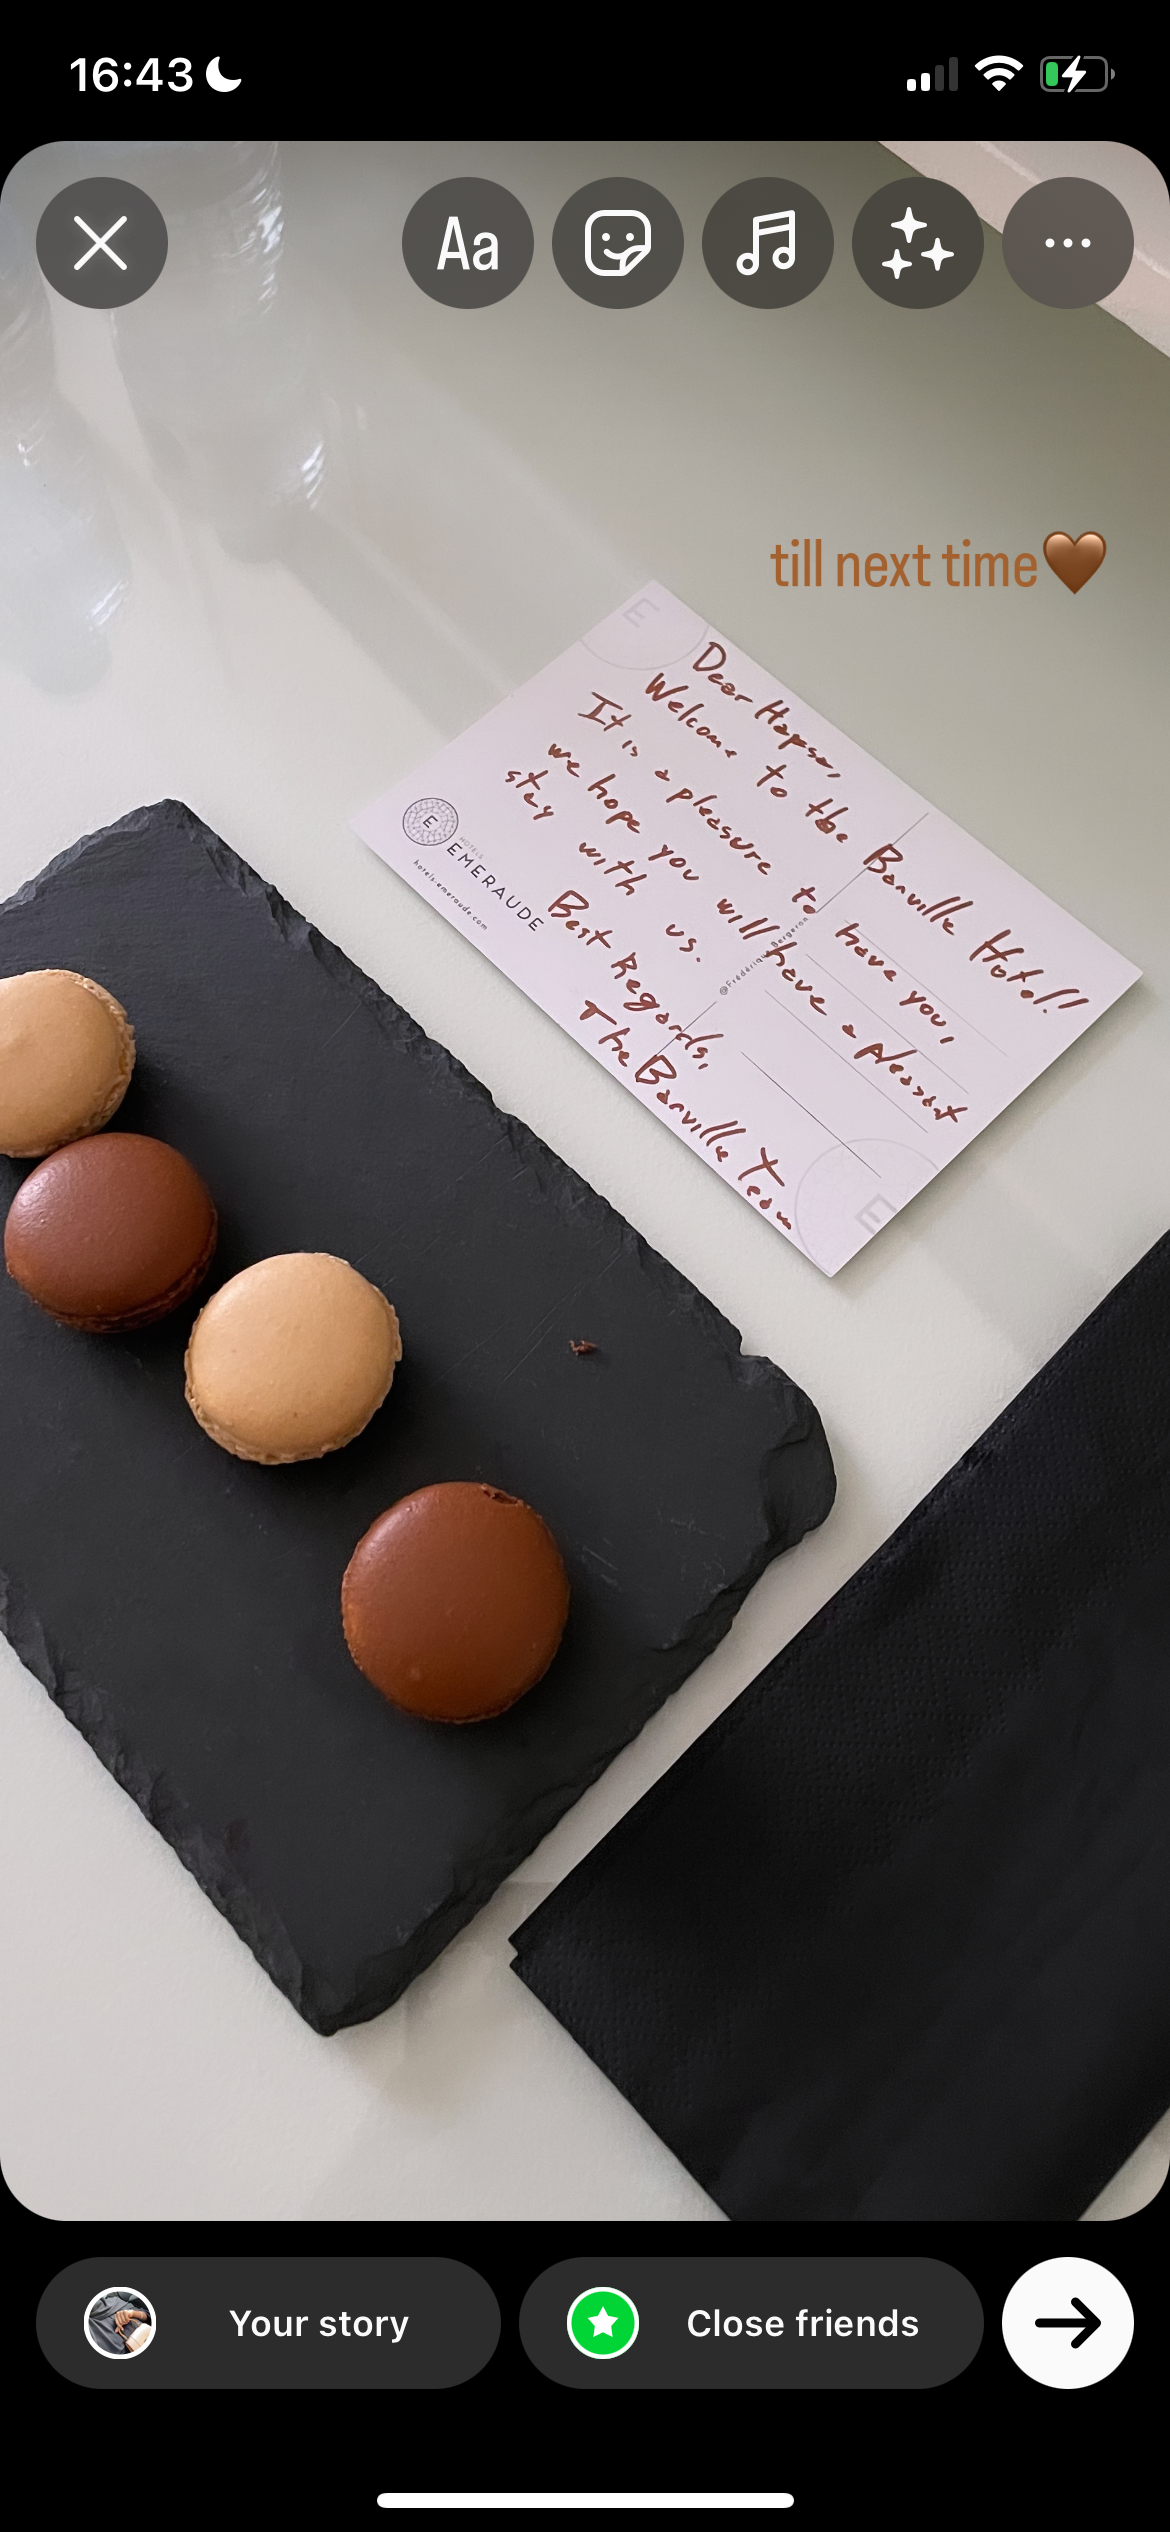 16:43
Aa
till next time🤎
Dear Hapsa,
Welcome to the Banville Hotel!!
It is a pleasure to have you,
we hope you will have a pleasant
stay with us.
Best Regards,
The Banville Team
E
HOTELS
EMERAUDE
hotels-emeraude.com
@Frédérique Bergeron
E
E
Your story
Close friends